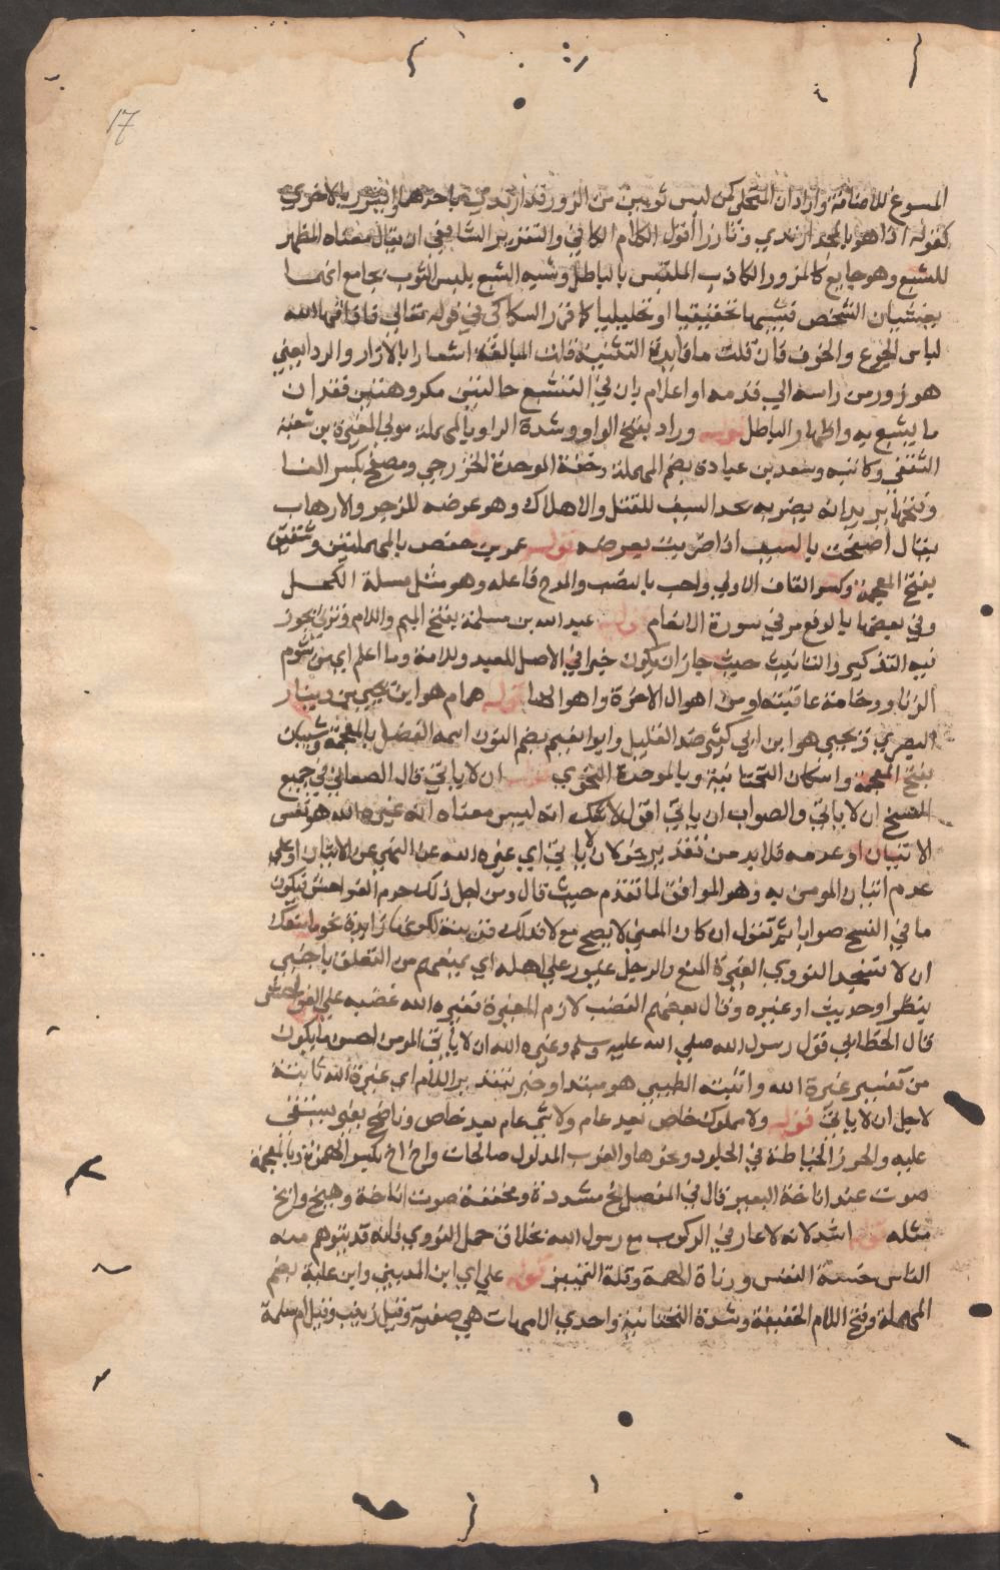 17
المسوغ للاضافة وارادان المتحلى كمن لبس ثوبين من الزور قد ارتدى باحدهما واتزر بالاخرى
كقوله اذا هو بالمجد ارتدى وتازرا اقول الكلام الكافي والتقرير الشافي ان يقال معناه المظهر
للشبع وهو جايع كالمزور الكاذب الملتبس بالباطل وشبه الشبع بلبس الثوب بجامع انهما
يغشيان الشخص تشبيها تحقيقيا او تخييليا كما قرر السكاكى في قوله تعالى فاذاقها الله
لباس الجوع والخوف فان قلت ما فايدة التثنية قلت المبالغة اشعارا بالازار والردا يعني
هو زور من راسه الي قدمه او اعلام بان في التشبع حالتين مكروهتين فقدان
ما يشبع به واظهار الباطل قوله وراد بفتح الواو وشدة الرا وبالمهملة مولي المغيرة بن شعبة
الثقفى وكاتبه وسعد بن عبادة بضم المهملة وخفة الموحدة الخزرجي ومصفح بكسر الفا
وفتحها يريد انه يضربه بحد السيف للقتل والاهلاك وهو عرضه للزجر والارهاب
يقال اصفحت بالسيف اذا ضربت بعرضه قوله عمر بن حفص بالمهملتين وشقيق
بفتح المعجمة وكسر القاف الاولي واحب بالنصب والمدح فاعله وهو مثل مسلة الكحل
وفي بعضها بالرفع مر في سورة الانعام قوله عبد الله بن مسلمة بفتح الميم واللام وتزني يجوز
فيه التذكير والتانيث حيث جاز ان يكون خبرا في الاصل للعبد وللامة وما اعلم اي من شوم
الزنا ووخامة عاقبته او من اهوال الاخرة واهوالها قوله همام هو ابن يحيى بن دينار
البصري ويحيى هو ابن ابي كثير ضد القليل وابو نعيم بضم النون اسمه الفضل بالمعجمة وشيبان
بفتح المعجمة واسكان التحتانية وبالموحدة النحوي قوله ان لا ياتي قال الصغاني في جميع
النسخ ان لا ياتي والصواب ان ياتي اقول لا شك انه ليس معناه ان غيرة الله هو نفس
الاتيان او عدمه فلا بد من تقدير نحو لان لا ياتي اي غيرة الله عن النهي عن الاتيان او علي
عدم اتيان المومن به وهو الموافق لما تقدم حيث قال ومن اجل ذلك حرم الفواحش فيكون
ما في النسخ صوابا ثم نقول ان كان المعنى لا يصح مع لا فذلك قرينة لكونها زايدة نحو ما منعك
ان لا تسجد النووي الغيرة المنع والرجل غيور علي اهله اي يمنعهم من التعلق باجنبي
بنظر او حديث او غيره وقال بعضهم الغضب لازم الغيرة فغيرة الله غضبه علي الفواحش
قال الخطابي قول رسول الله صلي الله عليه وسلم وغيرة الله ان لا ياتي المومن احسن ما يكون
من تفسير غيرة الله واثبته الطيبي هو مبتدا وخبر بتقدير اللام اي غيرة الله ثابتة
لاجل ان لا ياتي قوله ولا مملوك خاص بعد عام ولا شي عام بعد خاص وناضح بعير يستقى
عليه والخرز الخياطة في الجلود ونحوها والغرب الدلو صالحات واخ اخ بكسر الهمزة وبالمعجمة
صوت عند اناخة البعير قال في المفصل نخ مشددة ومخففة صوت اناخة وهيخ وايخ
مثله قوله اشد لانه لا عار في الركوب مع رسول الله بخلاف حمل النوي فانه قد يتوهم منه
الناس خسة النفس ودناة الهمة وقلة التمييز قوله علي اي ابن المديني وابن علية بضم
المهملة وفتح اللام الخفيفة وشدة التحتانية واحدي الامهات هي صفية وقيل زينب وقيل ام سلمة